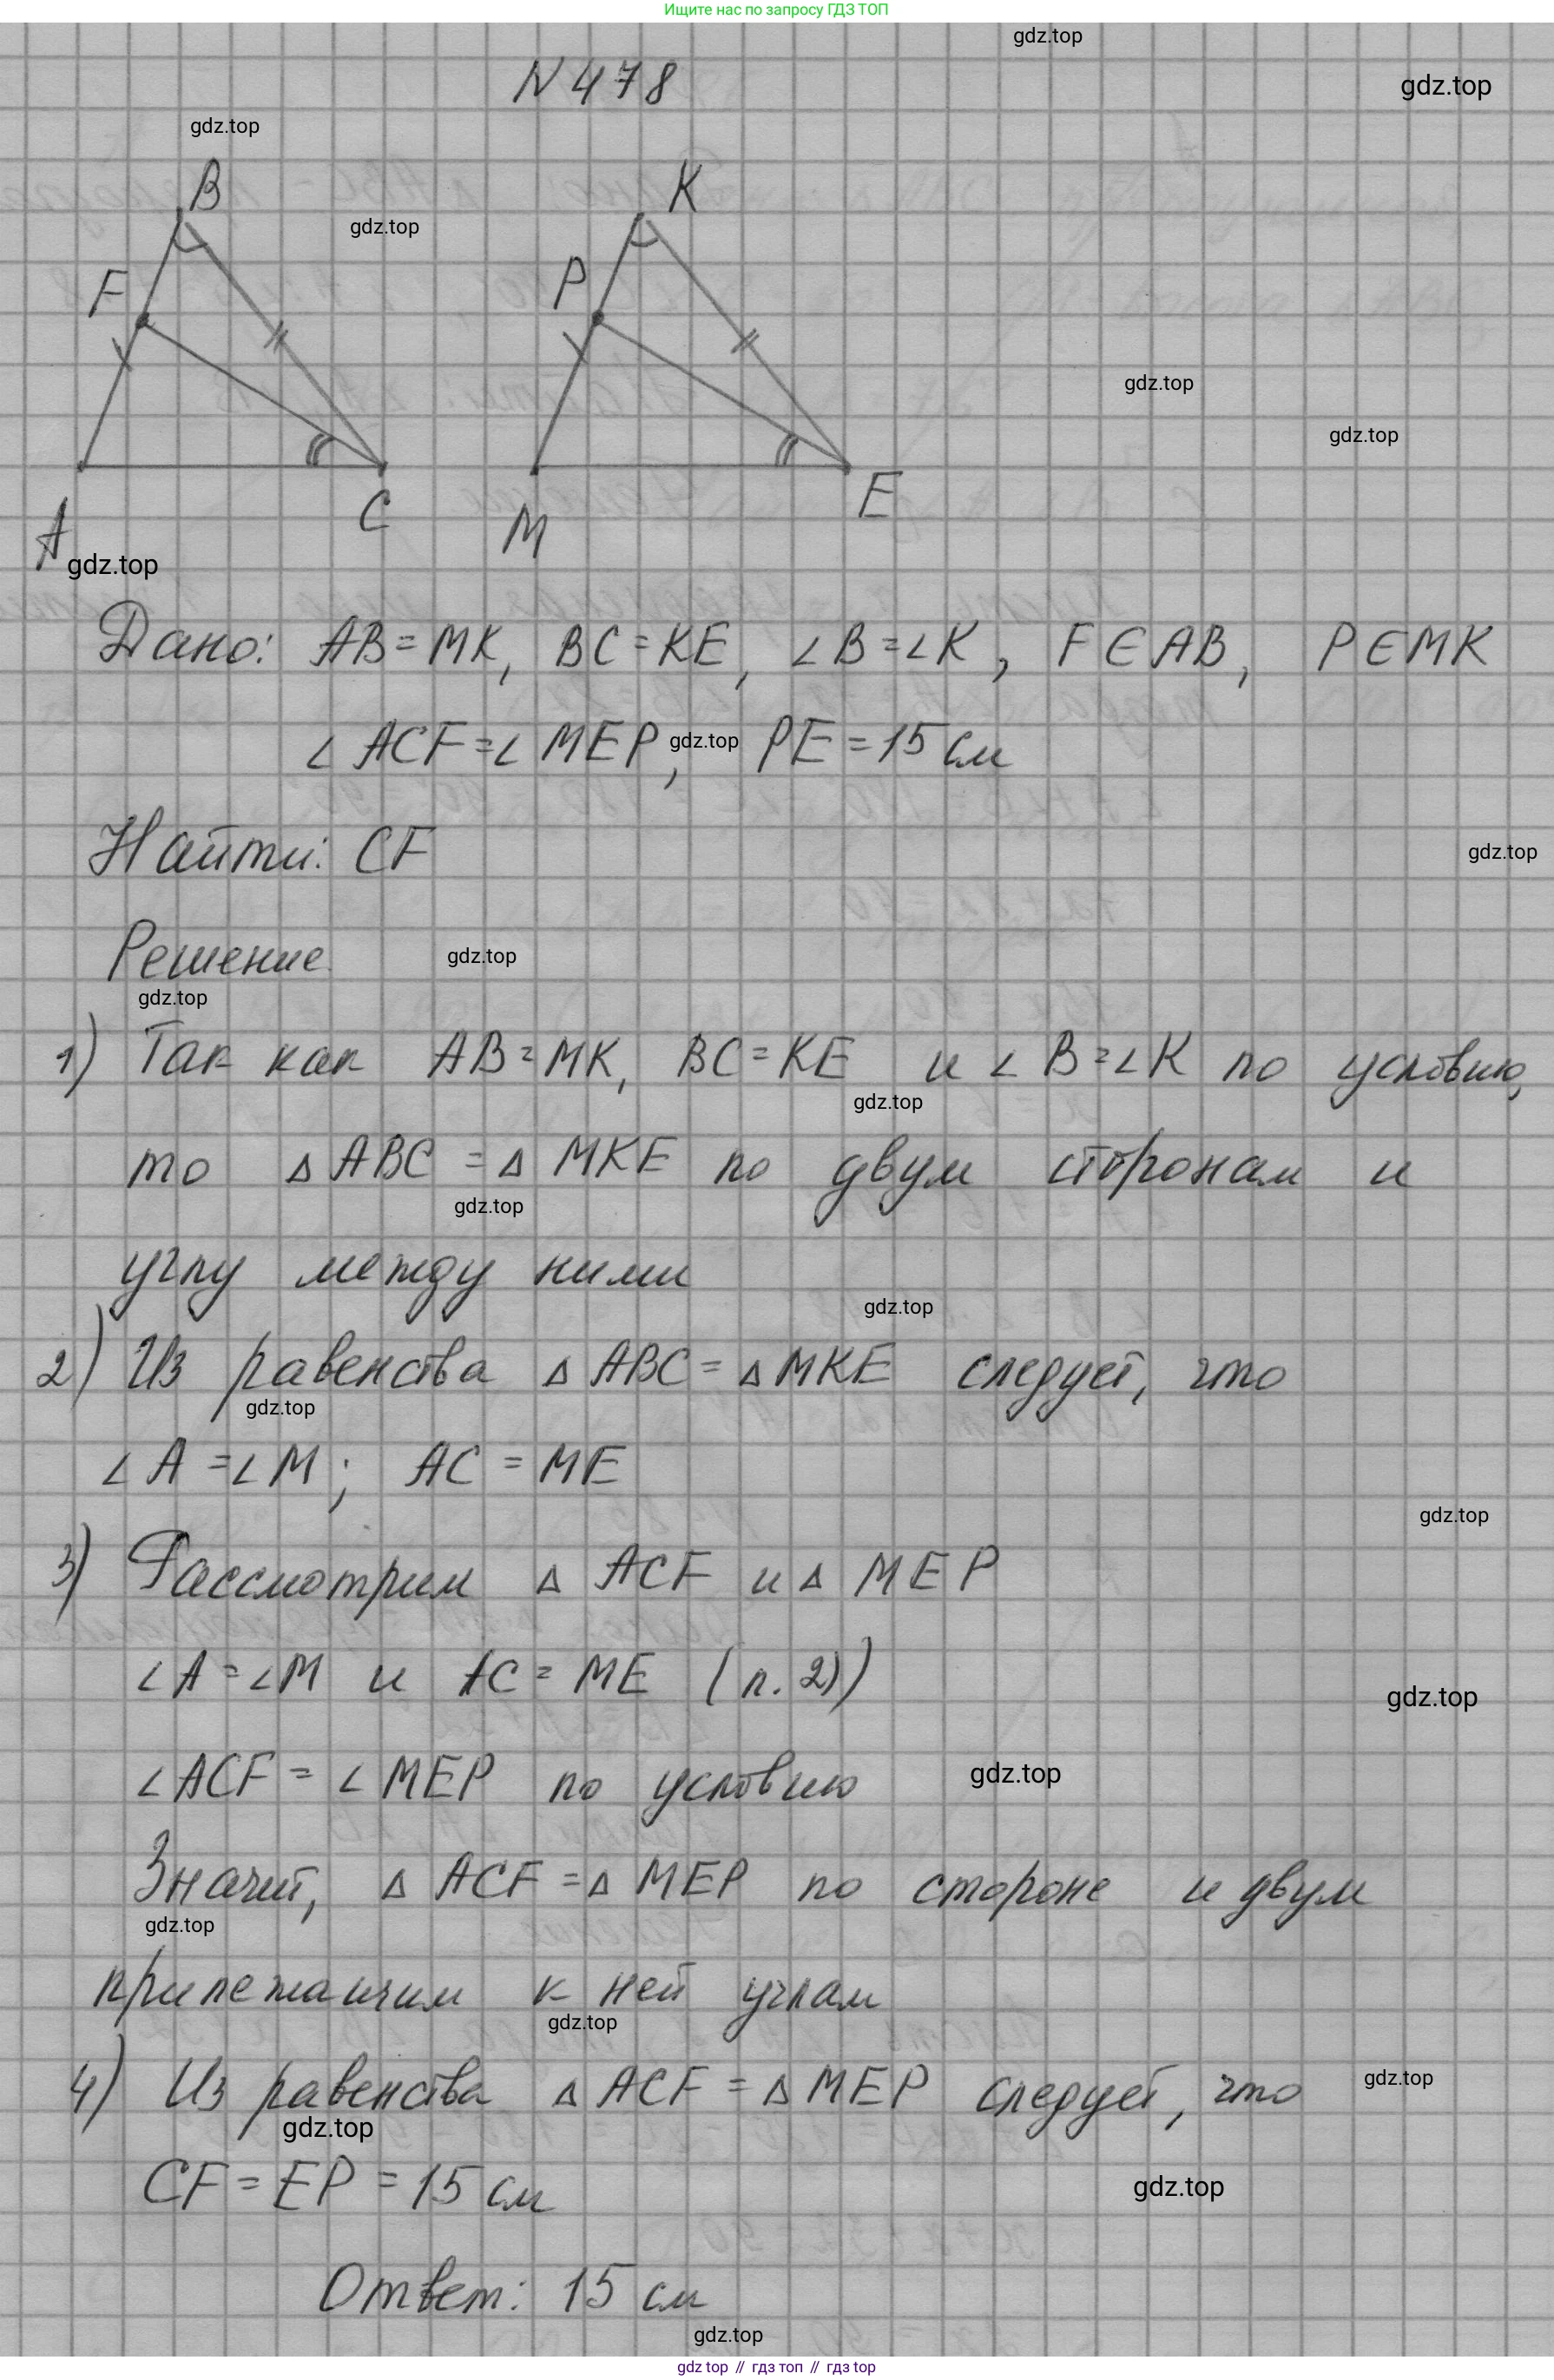 Ищите нас по запросу ГДЗ ТОП
gdz.top
N 478
gdz.top
gdz.top
B
K
gdz.top
F
P
gdz.top
gdz.top
A
C
M
E
gdz.top
Дано: AB = MK, BC = KE, ∠B = ∠K, F ∈ AB, P ∈ MK
∠ACF = ∠MEP, PE = 15 см
gdz.top
Найти: CF
gdz.top
Решение
gdz.top
gdz.top
1) Так как AB = MK, BC = KE и ∠B = ∠K по условию,
gdz.top
то △ABC = △MKE по двум сторонам и
gdz.top
углу между ними
gdz.top
2) Из равенства △ABC = △MKE следует, что
gdz.top
∠A = ∠M; AC = ME
gdz.top
3) Рассмотрим △ACF и △MEP
∠A = ∠M и AC = ME (п. 2))
gdz.top
∠ACF = ∠MEP по условию
gdz.top
Значит, △ACF = △MEP по стороне и двум
gdz.top
прилежащим к ней углам
gdz.top
4) Из равенства △ACF = △MEP следует, что
gdz.top
gdz.top
CF = EP = 15 см
gdz.top
Ответ: 15 см
gdz.top
gdz top // гдз топ // gdz top